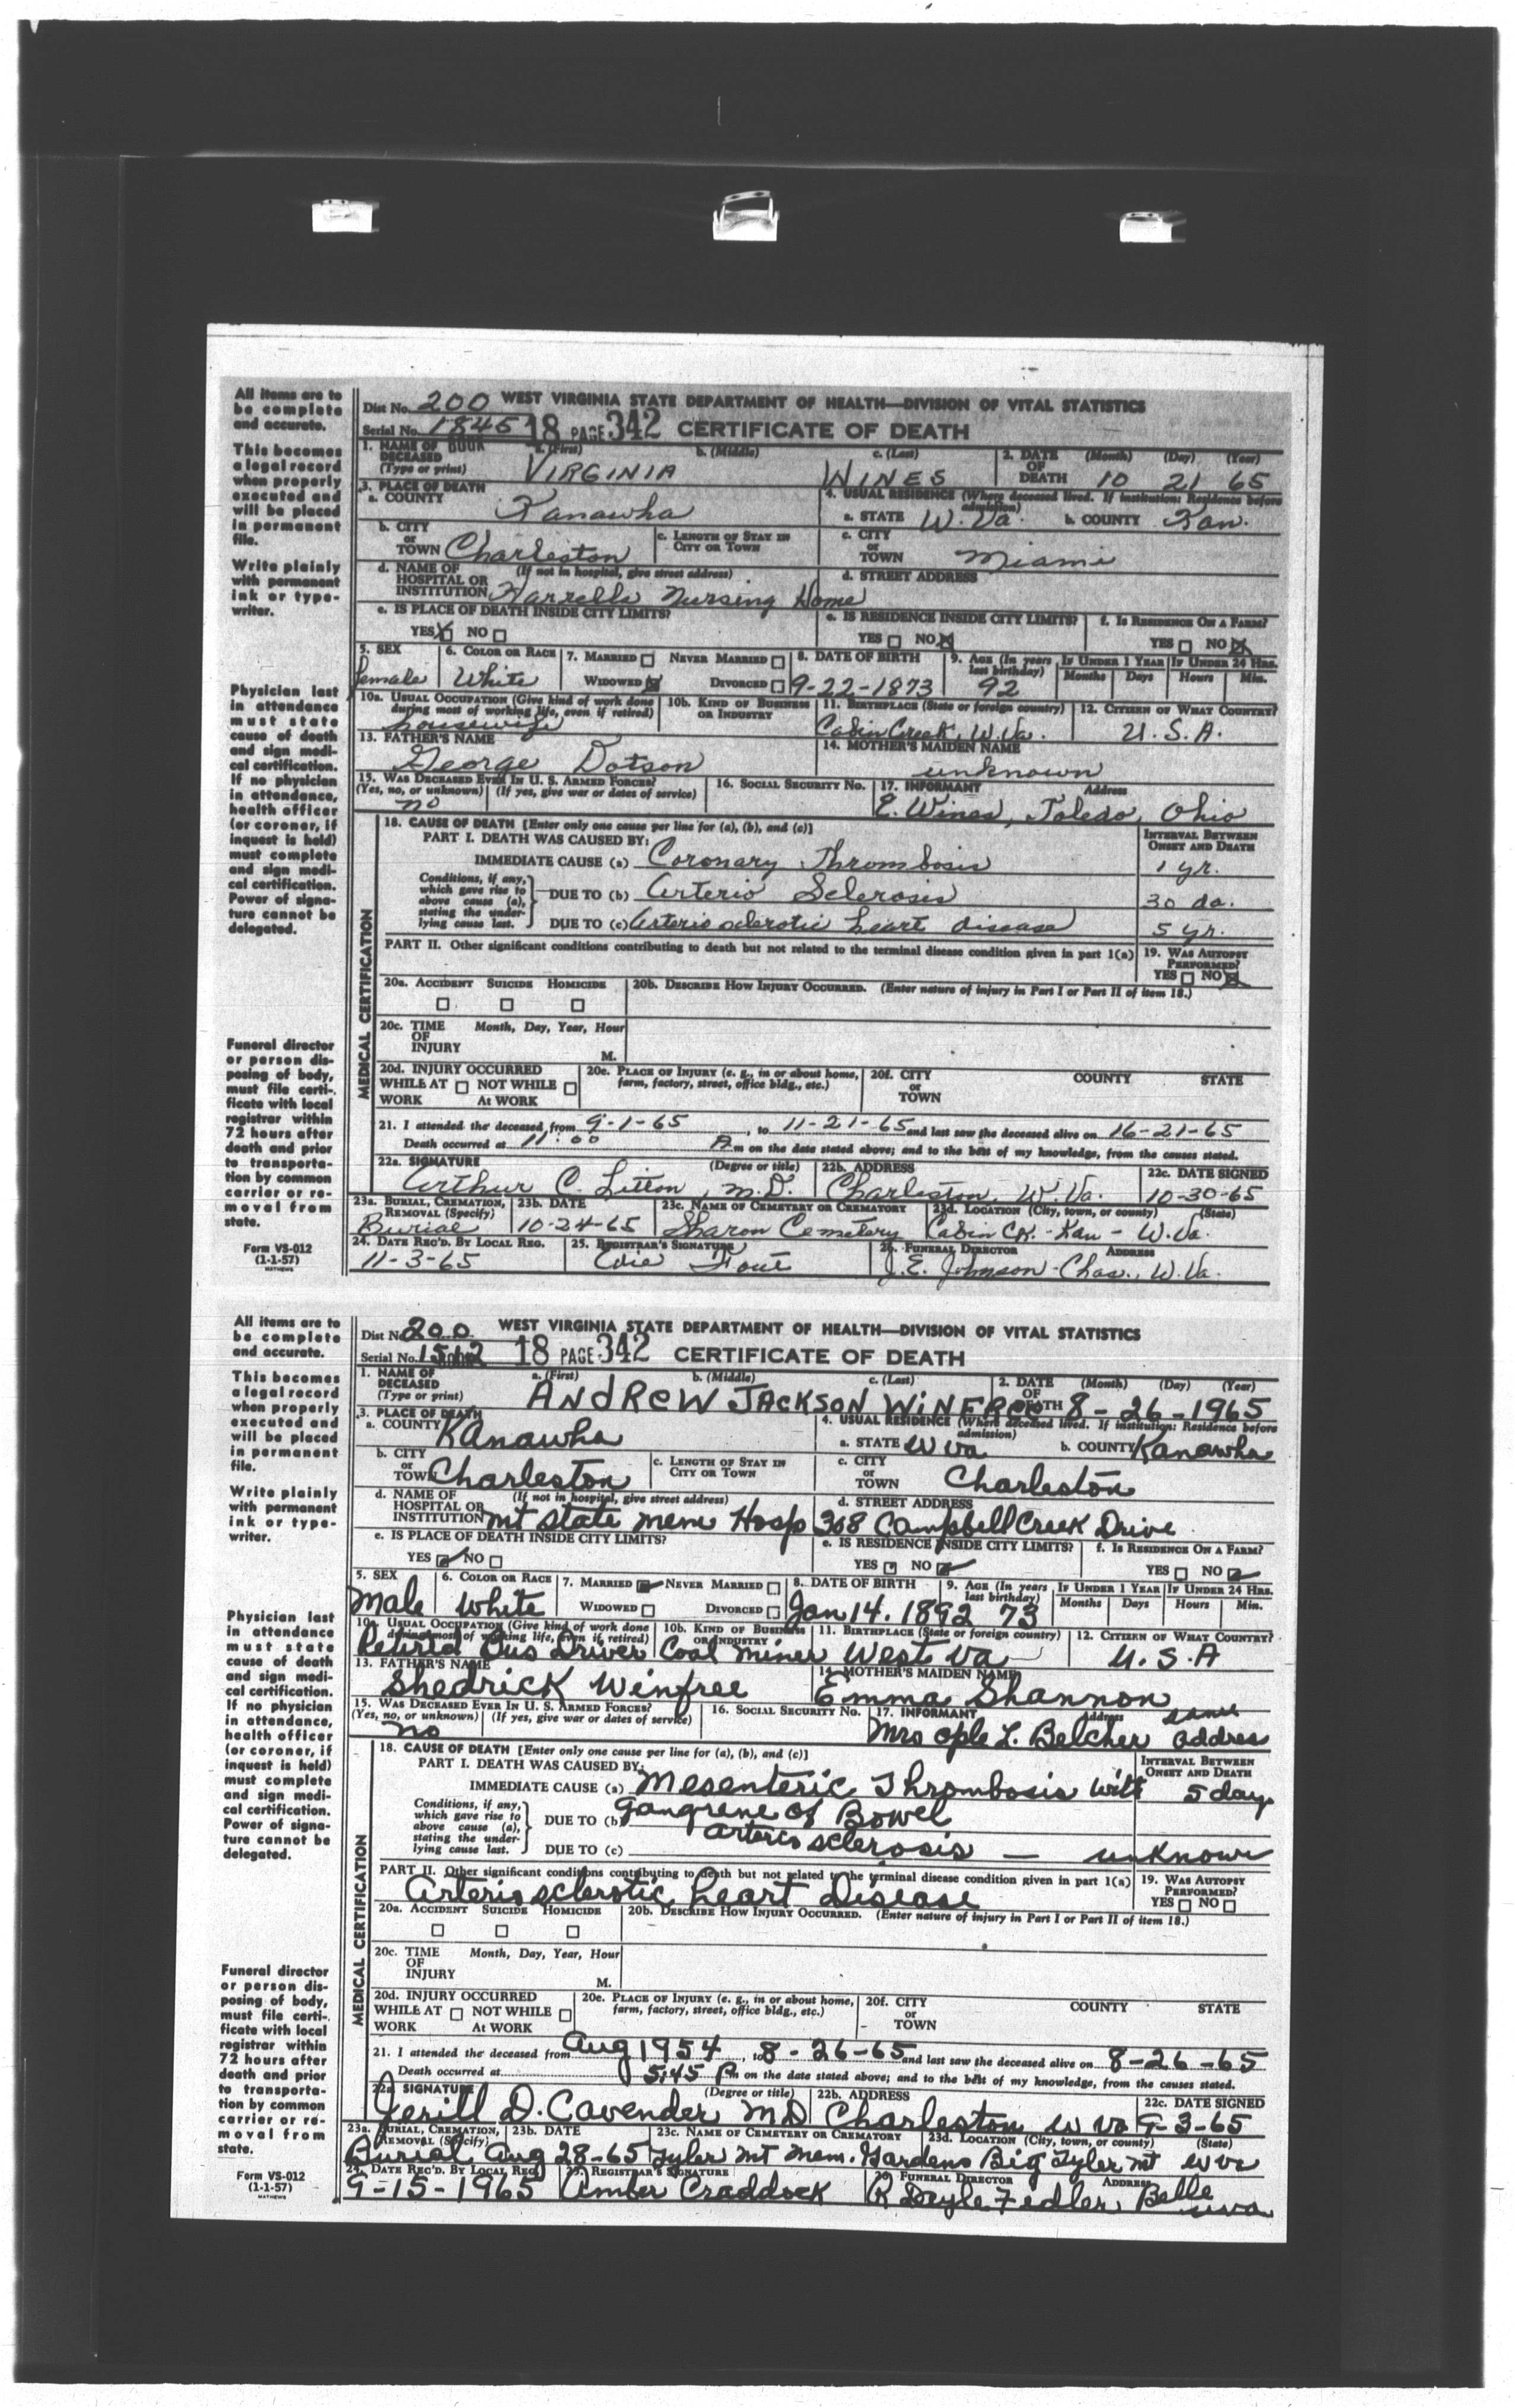 All items are to
be complete
and accurate.
This becomes
a legal record
when properly
executed and
will be placed
in permanent
file.
Write plainly
with permanent
ink or type-
writer.
Physician last
in attendance
must state
cause of death
and sign medi-
cal certification.
If no physician
in attendance,
health officer
(or coroner, if
inquest is held)
must complete
and sign medi-
cal certification.
Power of signa-
ture cannot be
delegated.
Funeral director
or person dis-
posing of body,
must file certi-
ficate with local
registrar within
72 hours after
death and prior
to transporta-
tion by common
carrier or re-
moval from
state.
Form VS-012
(1-1-57)
MATHEWS
Dist No. 200 WEST VIRGINIA STATE DEPARTMENT OF HEALTH—DIVISION OF VITAL STATISTICS
Serial No. 1845 BOOK 18 PAGE 342 CERTIFICATE OF DEATH
1. NAME OF DECEASED (Type or print) a. (First) b. (Middle) c. (Last) 2. DATE OF DEATH (Month) (Day) (Year)
VIRGINIA WINES 10 21 65
3. PLACE OF DEATH 4. USUAL RESIDENCE (Where deceased lived. If institution: Residence before admission)
a. COUNTY Kanawha a. STATE W. Va. b. COUNTY Kan.
b. CITY or TOWN Charleston c. LENGTH OF STAY IN CITY OR TOWN c. CITY or TOWN Miami
d. NAME OF HOSPITAL OR INSTITUTION (If not in hospital, give street address) d. STREET ADDRESS
Nursing Home
e. IS PLACE OF DEATH INSIDE CITY LIMITS? e. IS RESIDENCE INSIDE CITY LIMITS? f. IS RESIDENCE ON A FARM?
YES X NO YES NO X YES NO X
5. SEX 6. COLOR OR RACE 7. MARRIED NEVER MARRIED 8. DATE OF BIRTH 9. AGE (In years last birthday) IF UNDER 1 YEAR IF UNDER 24 HRS.
Months Days Hours Min.
female White WIDOWED X DIVORCED 9-22-1873 92
10a. USUAL OCCUPATION (Give kind of work done during most of working life, even if retired) 10b. KIND OF BUSINESS OR INDUSTRY 11. BIRTHPLACE (State or foreign country) 12. CITIZEN OF WHAT COUNTRY?
housewife Cabin Creek, W. Va. U. S. A.
13. FATHER'S NAME 14. MOTHER'S MAIDEN NAME
George Dotson unknown
15. WAS DECEASED EVER IN U. S. ARMED FORCES? 16. SOCIAL SECURITY NO. 17. INFORMANT Address
(Yes, no, or unknown) (If yes, give war or dates of service)
no E. Wines, Toledo, Ohio
MEDICAL CERTIFICATION
18. CAUSE OF DEATH [Enter only one cause per line for (a), (b), and (c)] INTERVAL BETWEEN ONSET AND DEATH
PART I. DEATH WAS CAUSED BY:
IMMEDIATE CAUSE (a) Coronary Thrombosis 1 yr.
Conditions, if any, which gave rise to above cause (a), stating the underlying cause last.
DUE TO (b) Arterio Sclerosis 30 da.
DUE TO (c) Arterio sclerotic heart disease 5 yr.
PART II. Other significant conditions contributing to death but not related to the terminal disease condition given in part 1(a) 19. WAS AUTOPSY PERFORMED?
YES NO X
20a. ACCIDENT SUICIDE HOMICIDE 20b. DESCRIBE HOW INJURY OCCURRED. (Enter nature of injury in Part I or Part II of item 18.)
20c. TIME OF INJURY Month, Day, Year, Hour
M.
20d. INJURY OCCURRED WHILE AT WORK NOT WHILE AT WORK 20e. PLACE OF INJURY (e. g., in or about home, farm, factory, street, office bldg., etc.) 20f. CITY or TOWN COUNTY STATE
21. I attended the deceased from 9-1-65, to 11-21-65 and last saw the deceased alive on 16-21-65
Death occurred at 11:00 A m on the date stated above; and to the best of my knowledge, from the causes stated.
22a. SIGNATURE (Degree or title) 22b. ADDRESS 22c. DATE SIGNED
Arthur C. Litton, M.D. Charleston, W. Va. 10-30-65
23a. BURIAL, CREMATION, REMOVAL (Specify) 23b. DATE 23c. NAME OF CEMETERY OR CREMATORY 23d. LOCATION (City, town, or county) (State)
Burial 10-24-65 Sharon Cemetery Cabin Ck. - Kan - W. Va.
24. DATE REC'D. BY LOCAL REG. 25. REGISTRAR'S SIGNATURE 26. FUNERAL DIRECTOR ADDRESS
11-3-65 J. E. Johnson - Chas., W. Va.
All items are to
be complete
and accurate.
This becomes
a legal record
when properly
executed and
will be placed
in permanent
file.
Write plainly
with permanent
ink or type-
writer.
Physician last
in attendance
must state
cause of death
and sign medi-
cal certification.
If no physician
in attendance,
health officer
(or coroner, if
inquest is held)
must complete
and sign medi-
cal certification.
Power of signa-
ture cannot be
delegated.
Funeral director
or person dis-
posing of body,
must file certi-
ficate with local
registrar within
72 hours after
death and prior
to transporta-
tion by common
carrier or re-
moval from
state.
Form VS-012
(1-1-57)
MATHEWS
Dist No. 200 WEST VIRGINIA STATE DEPARTMENT OF HEALTH—DIVISION OF VITAL STATISTICS
Serial No. 18 PAGE 342 CERTIFICATE OF DEATH
1. NAME OF DECEASED (Type or print) a. (First) b. (Middle) c. (Last) 2. DATE OF DEATH (Month) (Day) (Year)
ANDREW JACKSON WINFREE 8-26-1965
3. PLACE OF DEATH 4. USUAL RESIDENCE (Where deceased lived. If institution: Residence before admission)
a. COUNTY Kanawha a. STATE W Va b. COUNTY Kanawha
b. CITY or TOWN Charleston c. LENGTH OF STAY IN CITY OR TOWN c. CITY or TOWN Charleston
d. NAME OF HOSPITAL OR INSTITUTION (If not in hospital, give street address) d. STREET ADDRESS
Mt State Mem Hosp 308 Campbell Creek Drive
e. IS PLACE OF DEATH INSIDE CITY LIMITS? e. IS RESIDENCE INSIDE CITY LIMITS? f. IS RESIDENCE ON A FARM?
YES NO YES NO YES NO
5. SEX 6. COLOR OR RACE 7. MARRIED NEVER MARRIED 8. DATE OF BIRTH 9. AGE (In years last birthday) IF UNDER 1 YEAR IF UNDER 24 HRS.
Months Days Hours Min.
Male White WIDOWED DIVORCED Jan 14. 1892 73
10a. USUAL OCCUPATION (Give kind of work done during most of working life, even if retired) 10b. KIND OF BUSINESS OR INDUSTRY 11. BIRTHPLACE (State or foreign country) 12. CITIZEN OF WHAT COUNTRY?
Retired Bus Driver Coal Miner West Va U.S.A
13. FATHER'S NAME 14. MOTHER'S MAIDEN NAME
Shedrick Winfree Emma Shannon
15. WAS DECEASED EVER IN U. S. ARMED FORCES? 16. SOCIAL SECURITY NO. 17. INFORMANT Address
(Yes, no, or unknown) (If yes, give war or dates of service)
no Mrs Ople L. Belcher same addres
MEDICAL CERTIFICATION
18. CAUSE OF DEATH [Enter only one cause per line for (a), (b), and (c)] INTERVAL BETWEEN ONSET AND DEATH
PART I. DEATH WAS CAUSED BY:
IMMEDIATE CAUSE (a) Mesenteric Thrombosis with 5 days
Conditions, if any, which gave rise to above cause (a), stating the underlying cause last.
DUE TO (b) Gangrene of Bowel
DUE TO (c) arteriosclerosis — unknown
PART II. Other significant conditions contributing to death but not related to the terminal disease condition given in part 1(a) 19. WAS AUTOPSY PERFORMED?
Arteriosclerotic heart Disease YES NO
20a. ACCIDENT SUICIDE HOMICIDE 20b. DESCRIBE HOW INJURY OCCURRED. (Enter nature of injury in Part I or Part II of item 18.)
20c. TIME OF INJURY Month, Day, Year, Hour
M.
20d. INJURY OCCURRED WHILE AT WORK NOT WHILE AT WORK 20e. PLACE OF INJURY (e. g., in or about home, farm, factory, street, office bldg., etc.) 20f. CITY or TOWN COUNTY STATE
21. I attended the deceased from Aug 1954, to 8-26-65 and last saw the deceased alive on 8-26-65
Death occurred at 5:45 Pm on the date stated above; and to the best of my knowledge, from the causes stated.
22a. SIGNATURE (Degree or title) 22b. ADDRESS 22c. DATE SIGNED
Jerill D. Cavender MD Charleston W Va 9-3-65
23a. BURIAL, CREMATION, REMOVAL (Specify) 23b. DATE 23c. NAME OF CEMETERY OR CREMATORY 23d. LOCATION (City, town, or county) (State)
Burial Aug 28-65 Tyler Mt Mem. Gardens Big Tyler Mt W Va
24. DATE REC'D. BY LOCAL REG. 25. REGISTRAR'S SIGNATURE 26. FUNERAL DIRECTOR ADDRESS
9-15-1965 Amber Craddock Fidler Belle W Va